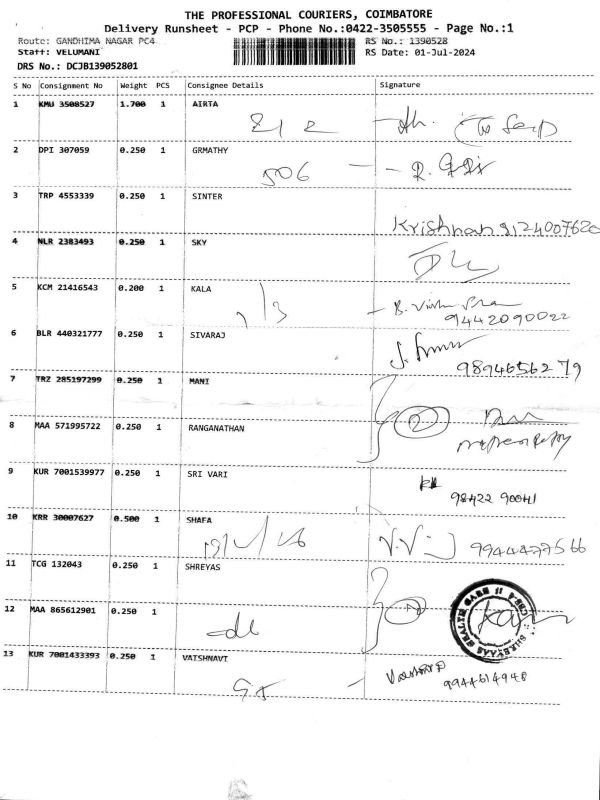 THE PROFESSIONAL COURIERS, COIMBATORE
Delivery Runsheet - PCP - Phone No.:0422-3505555 - Page No.:1
Route: GANDHIMA NAGAR PC4 RS No.: 1390528
Staff: VELUMANI RS Date: 01-Jul-2024
DRS No.: DCJB139052801
S No Consignment No Weight PCS Consignee Details Signature
1 KMU 3508527 1.700 1 AIRTA
212
2 DPI 307059 0.250 1 GRMATHY
506
3 TRP 4553339 0.250 1 SINTER
Krishnan 9124007620
4 NLR 2383493 0.250 1 SKY
5 KCM 21416543 0.200 1 KALA
1/3
9442090022
6 BLR 440321777 0.250 1 SIVARAJ
9894656279
7 TRZ 285197299 0.250 1 MANI
2
8 MAA 571995722 0.250 1 RANGANATHAN
9 KUR 7001539977 0.250 1 SRI VARI
98422 90041
10 KRR 30007627 0.500 1 SHAFA
9944477566
11 TCG 132043 0.250 1 SHREYAS
12 MAA 865612901 0.250 1
13 KUR 7001433393 0.250 1 VAISHNAVI
9944614948